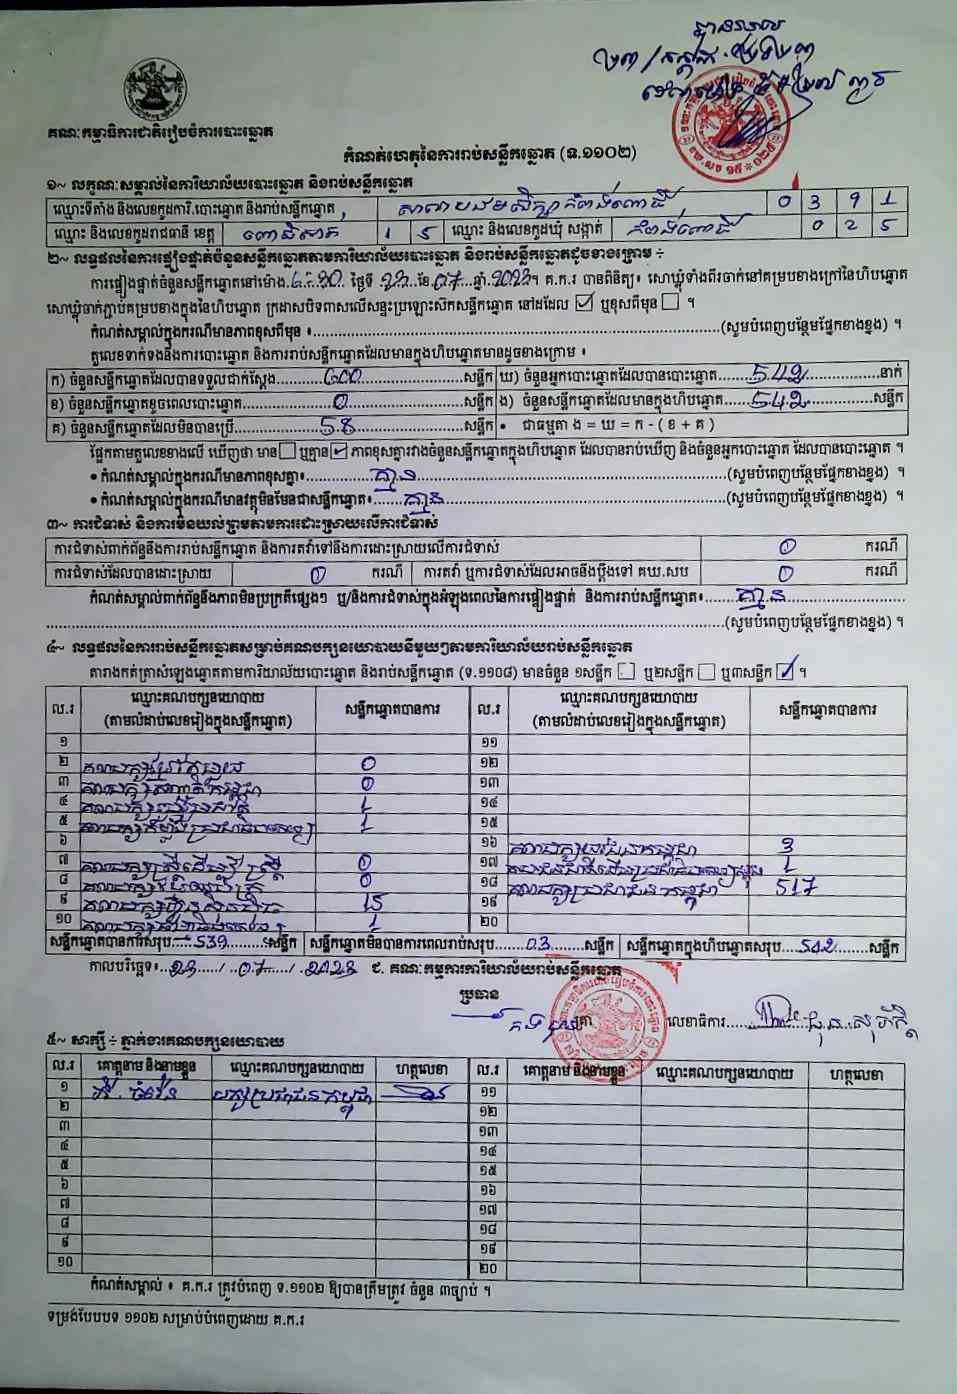 គណៈកម្មាធិការជាតិរៀបចំការបោះឆ្នោត
កំណត់ហេតុនៃការរាប់សន្លឹកឆ្នោត (ទ.១១០២)
១~ លក្ខណៈសម្គាល់នៃការិយាល័យបោះឆ្នោត និងរាប់សន្លឹកឆ្នោត
ឈ្មោះទីតាំង និងលេខកូដការិ.បោះឆ្នោត និងរាប់សន្លឹកឆ្នោត សាលាបឋមសិក្សាកំពង់ពោធិ៍ 0 3 9 1
ឈ្មោះ និងលេខកូដរាជធានី ខេត្ត ពោធិ៍សាត់ 1 5 ឈ្មោះ និងលេខកូដឃុំ សង្កាត់ កំពង់ពោធិ៍ 0 2 5
២~ លទ្ធផលនៃការផ្ទៀងផ្ទាត់ចំនួនសន្លឹកឆ្នោតតាមការិយាល័យបោះឆ្នោត និងរាប់សន្លឹកឆ្នោតដូចខាងក្រោម ÷
ការផ្ទៀងផ្ទាត់ចំនួនសន្លឹកឆ្នោតនៅម៉ោង ថ្ងៃទី 23 ខែ 07 ឆ្នាំ 2023។ គ.ក.រ បានពិនិត្យ៖ សោឃ្លុំទាំងពីរចាក់នៅគម្របខាងក្រៅនៃហិបឆ្នោត
សោឃ្លុំចាក់ភ្ជាប់គម្របខាងក្នុងនៃហិបឆ្នោត ក្រដាសបិទពាសលើសន្ទះប្រឡោះស៊កសន្លឹកឆ្នោត នៅដដែល ☑ ឬខុសពីមុន ☐ ។
កំណត់សម្គាល់ក្នុងករណីមានភាពខុសពីមុន ៖ (សូមបំពេញបន្ថែមផ្នែកខាងខ្នង) ។
តួលេខទាក់ទងនឹងការបោះឆ្នោត និងការរាប់សន្លឹកឆ្នោតដែលមានក្នុងហិបឆ្នោតមានដូចខាងក្រោម ៖
ក) ចំនួនសន្លឹកឆ្នោតដែលបានទទួលជាក់ស្តែង 600 សន្លឹក ឃ) ចំនួនអ្នកបោះឆ្នោតដែលបានបោះឆ្នោត 542 នាក់
ខ) ចំនួនសន្លឹកឆ្នោតខូចពេលបោះឆ្នោត 0 សន្លឹក ង) ចំនួនសន្លឹកឆ្នោតដែលមានក្នុងហិបឆ្នោត 542 សន្លឹក
គ) ចំនួនសន្លឹកឆ្នោតដែលមិនបានប្រើ 58 សន្លឹក • ជាធម្មតា ង = ឃ = ក - ( ខ + គ )
ផ្អែកតាមតួលេខខាងលើ ឃើញថា មាន ☐ ឬគ្មាន ☑ ភាពខុសគ្នារវាងចំនួនសន្លឹកឆ្នោតក្នុងហិបឆ្នោត ដែលបានរាប់ឃើញ និងចំនួនអ្នកបោះឆ្នោត ដែលបានបោះឆ្នោត ។
• កំណត់សម្គាល់ក្នុងករណីមានភាពខុសគ្នា៖ គ្មាន (សូមបំពេញបន្ថែមផ្នែកខាងខ្នង) ។
• កំណត់សម្គាល់ក្នុងករណីមានវត្ថុមិនមែនជាសន្លឹកឆ្នោត៖ គ្មាន (សូមបំពេញបន្ថែមផ្នែកខាងខ្នង) ។
៣~ ការជំទាស់ និងការមិនយល់ព្រមតាមការដោះស្រាយលើការជំទាស់
ការជំទាស់ពាក់ព័ន្ធនឹងការរាប់សន្លឹកឆ្នោត និងការតវ៉ាទៅនឹងការដោះស្រាយលើការជំទាស់ 0 ករណី
ការជំទាស់ដែលបានដោះស្រាយ 0 ករណី ការតវ៉ា ឬការជំទាស់ដែលអាចនឹងប្តឹងទៅ គឃ.សប 0 ករណី
កំណត់សម្គាល់ពាក់ព័ន្ធនឹងភាពមិនប្រក្រតីផ្សេងៗ ឬ/និងការជំទាស់ក្នុងអំឡុងពេលនៃការផ្ទៀងផ្ទាត់ និងការរាប់សន្លឹកឆ្នោត៖ គ្មាន
(សូមបំពេញបន្ថែមផ្នែកខាងខ្នង) ។
៤~ លទ្ធផលនៃការរាប់សន្លឹកឆ្នោតសម្រាប់គណបក្សនយោបាយនីមួយៗតាមការិយាល័យរាប់សន្លឹកឆ្នោត
តារាងកត់ត្រាសំឡេងឆ្នោតតាមការិយាល័យបោះឆ្នោត និងរាប់សន្លឹកឆ្នោត (ទ.១១០៨) មានចំនួន ១សន្លឹក ☐ ឬ២សន្លឹក ☐ ឬ៣សន្លឹក ☑ ។
ល.រ ឈ្មោះគណបក្សនយោបាយ (តាមលំដាប់លេខរៀងក្នុងសន្លឹកឆ្នោត) សន្លឹកឆ្នោតបានការ ល.រ ឈ្មោះគណបក្សនយោបាយ (តាមលំដាប់លេខរៀងក្នុងសន្លឹកឆ្នោត) សន្លឹកឆ្នោតបានការ
១ ១១
២ 0 ១២
៣ 0 ១៣
៤ 1 ១៤
៥ 1 ១៥
៦ ១៦ 3
៧ គណបក្សស្ត្រីដើម្បីស្ត្រី 0 ១៧ 1
៨ 0 ១៨ គណបក្សប្រជាជនកម្ពុជា 517
៩ 15 ១៩
១០ 1 ២០
សន្លឹកឆ្នោតបានការសរុប 539 សន្លឹក សន្លឹកឆ្នោតមិនបានការពេលរាប់សរុប 03 សន្លឹក សន្លឹកឆ្នោតក្នុងហិបឆ្នោតសរុប 542 សន្លឹក
កាលបរិច្ឆេទ៖ 23 / 07 / 2023 ជ. គណៈកម្មការការិយាល័យរាប់សន្លឹកឆ្នោត
ប្រធាន
លេខាធិការ
៥~ សាក្សី ÷ ភ្នាក់ងារគណបក្សនយោបាយ
ល.រ គោត្តនាម និងនាមខ្លួន ឈ្មោះគណបក្សនយោបាយ ហត្ថលេខា ល.រ គោត្តនាម និងនាមខ្លួន ឈ្មោះគណបក្សនយោបាយ ហត្ថលេខា
១ បក្សប្រជាជនកម្ពុជា ១១
២ ១២
៣ ១៣
៤ ១៤
៥ ១៥
៦ ១៦
៧ ១៧
៨ ១៨
៩ ១៩
១០ ២០
កំណត់សម្គាល់ ៖ គ.ក.រ ត្រូវបំពេញ ទ.១១០២ ឱ្យបានត្រឹមត្រូវ ចំនួន ៣ច្បាប់ ។
ទម្រង់បែបបទ ១១០២ សម្រាប់បំពេញដោយ គ.ក.រ